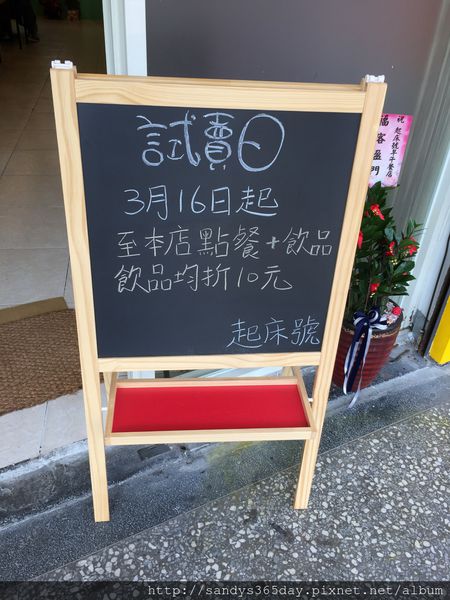 試賣日
3月16日起
至本店點餐+飲品
飲品均折10元
起床號
祝 起床號早午餐店
福客盈門
http://sandys365day.pixnet.net/album